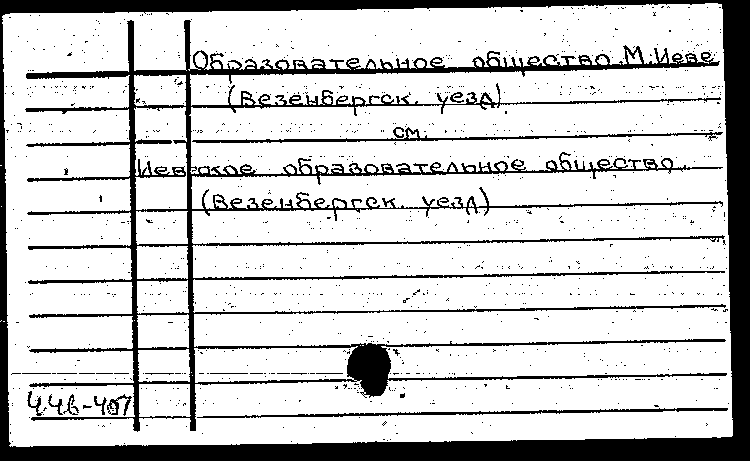 Образовательное общество М. Иеве
(Везенбергск. уезд)
см.
Иевское образовательное общество
(Везенбергск. уезд)